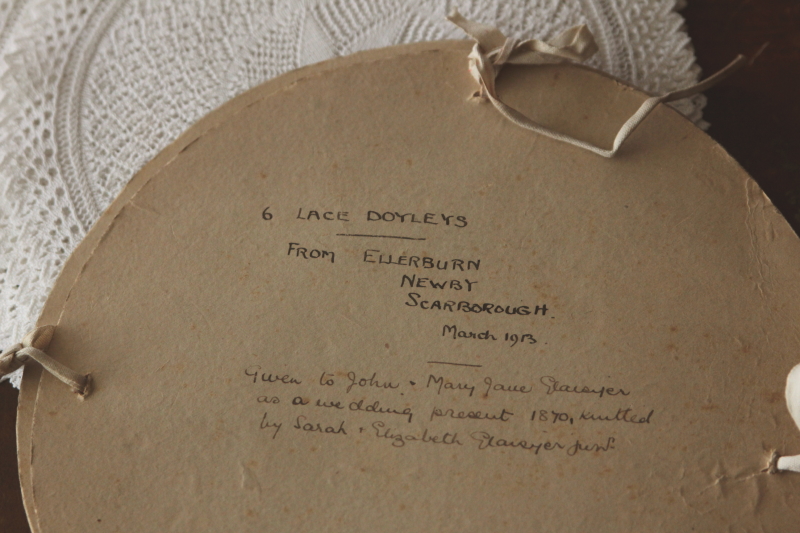 6 LACE DOYLEYS
FROM ELLERBURN
NEWBY
SCARBOROUGH.
March 1913.
Given to John & Mary Jane Glaisyer
as a wedding present 1870, knitted
by Sarah & Elizabeth Glaisyer junr